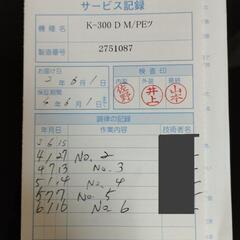 サービス記録
機種名 K-300 D M/PEツ
製造番号 2751087
お届け日 検査印
2年6月1日 内装 外装 最終
保証期間 佐野 井上 山本
6年6月1日
調律の記録
年月日 作業内容 技術者名
3 6 15
4 1/27 No. 2
4 7 13 No. 3
5 1/4 No. 4
5 7 7 No. 5
6 1/10 No 6